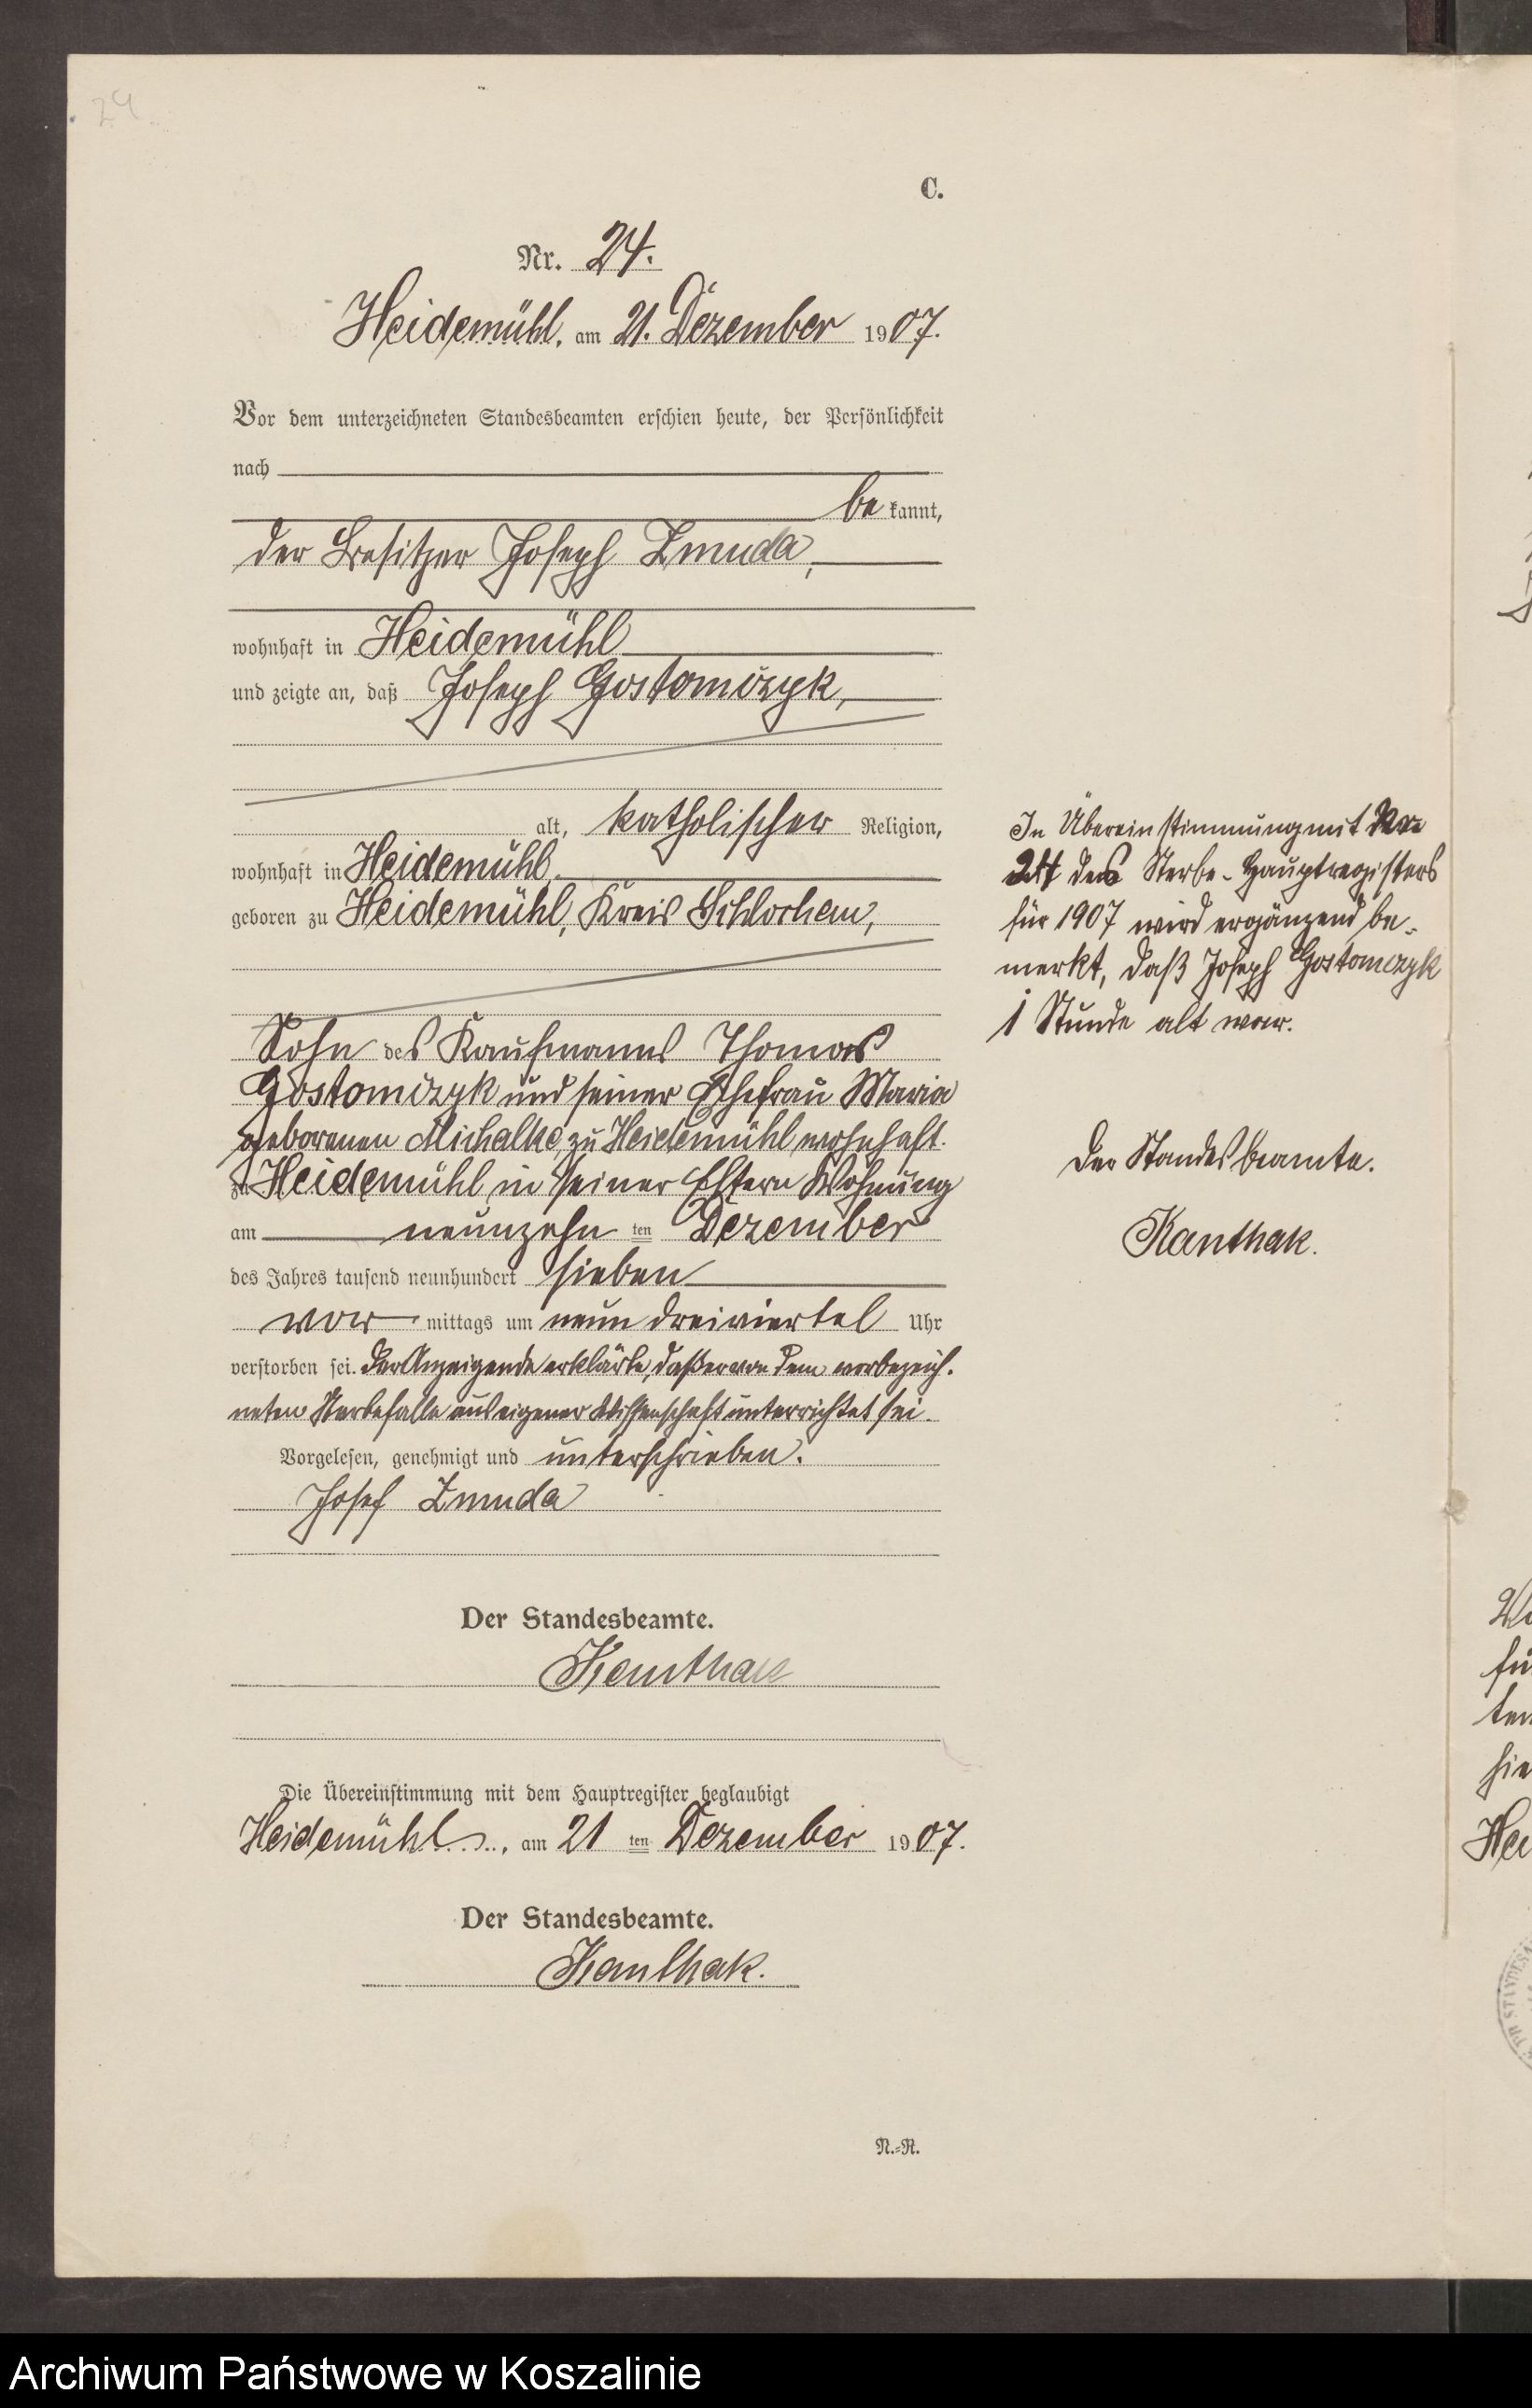 24
C.
Nr. 24.
Heidemühl, am 21. Dezember 1907.
Vor dem unterzeichneten Standesbeamten erschien heute, der Persönlichkeit
nach
be kannt,
der Besitzer Joseph Zmuda,
wohnhaft in Heidemühl
und zeigte an, daß Joseph Gostomczyk,
alt, katholischer Religion,
wohnhaft in Heidemühl,
geboren zu Heidemühl, Kreis Schlochau,
Sohn des Kaufmanns Thomas
Gostomczyk und seiner Ehefrau Maria
geborenen Michalke, zu Heidemühl wohnhaft.
zu Heidemühl in seiner Eltern Wohnung
am neunzehn ten Dezember
des Jahres tausend neunhundert sieben
vor mittags um neun dreiviertel Uhr
verstorben sei. Der Anzeigende erklärte, daß er von dem vorbezeich-
neten Sterbefalle aus eigener Wissenschaft unterrichtet sei.
Vorgelesen, genehmigt und unterschrieben.
Josef Zmuda
Der Standesbeamte.
Kanthak
Die Übereinstimmung mit dem Hauptregister beglaubigt
Heidemühl, am 21 ten Dezember 1907.
Der Standesbeamte.
Kanthak.
N.-R.
In Übereinstimmung mit Nro
24 des Sterbe-Hauptregisters
für 1907 wird ergänzend be-
merkt, daß Joseph Gostomczyk
1 Stunde alt war.
Der Standesbeamte.
Kanthak.
Archiwum Państwowe w Koszalinie